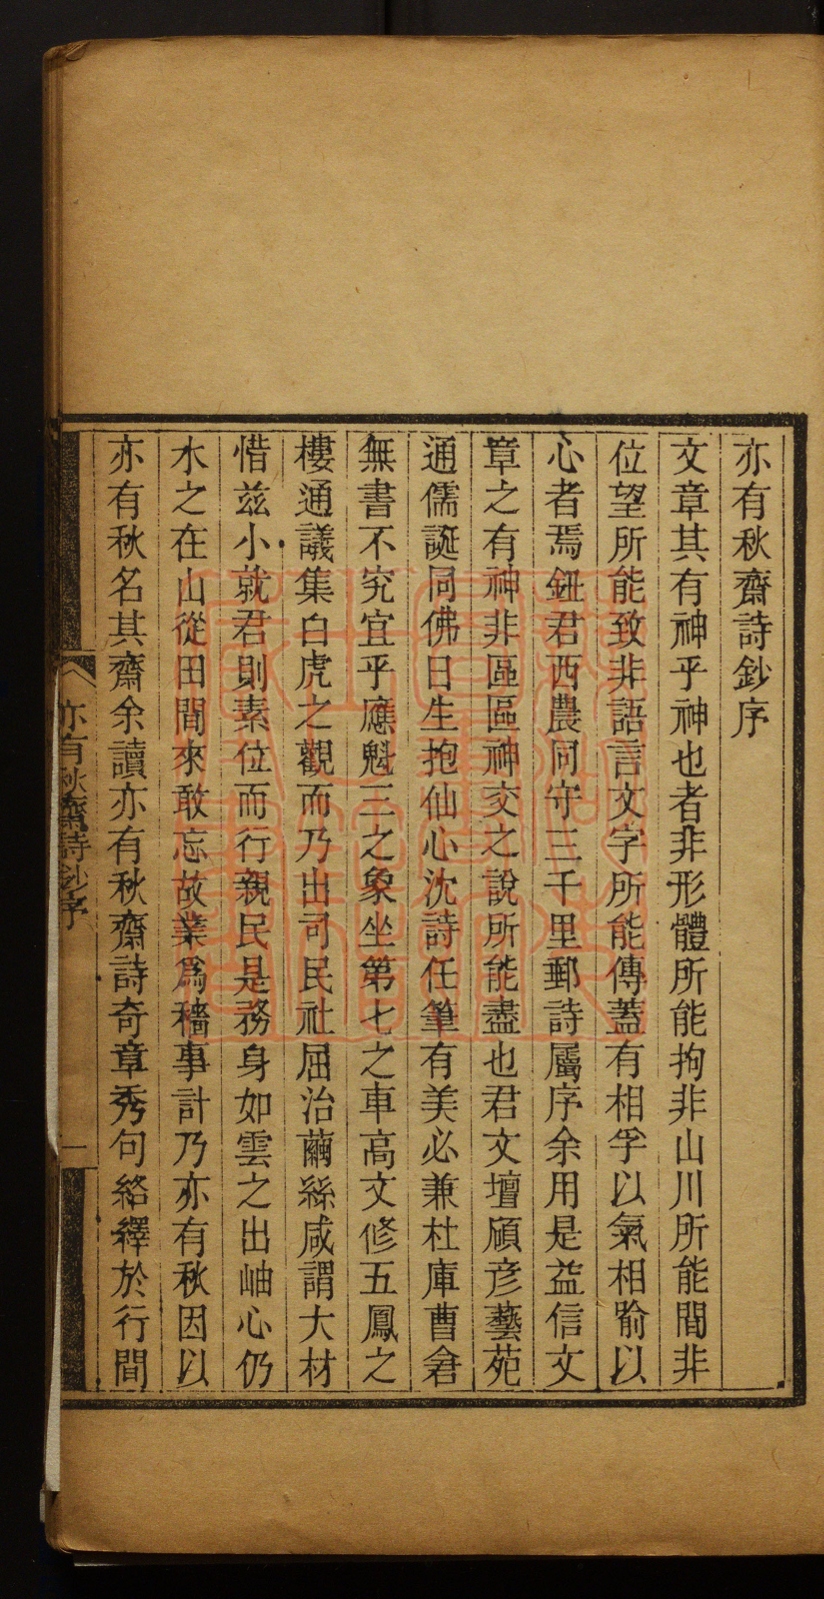 亦有秋齋詩鈔序
文章其有神乎神也者非形體所能拘非山川所能間非
位望所能致非語言文字所能傳蓋有相孚以氣相喻以
心者焉鈕君西農同守三千里郵詩屬序余用是益信文
章之有神非區區神交之說所能盡也君文壇頎彥藝苑
通儒誕同佛日生抱仙心沈詩任筆有美必兼杜庫曹倉
無書不究宜乎應魁三之象坐第七之車高文修五鳳之
樓通議集白虎之觀而乃出司民社屈治繭絲咸謂大材
惜兹小就君則素位而行親民是務身如雲之出岫心仍
木之在山從田間來敢忘故業爲穡事計乃亦有秋因以
亦有秋名其齋余讀亦有秋齋詩奇章秀句絡繹於行間
亦有秋齋詩鈔序
一